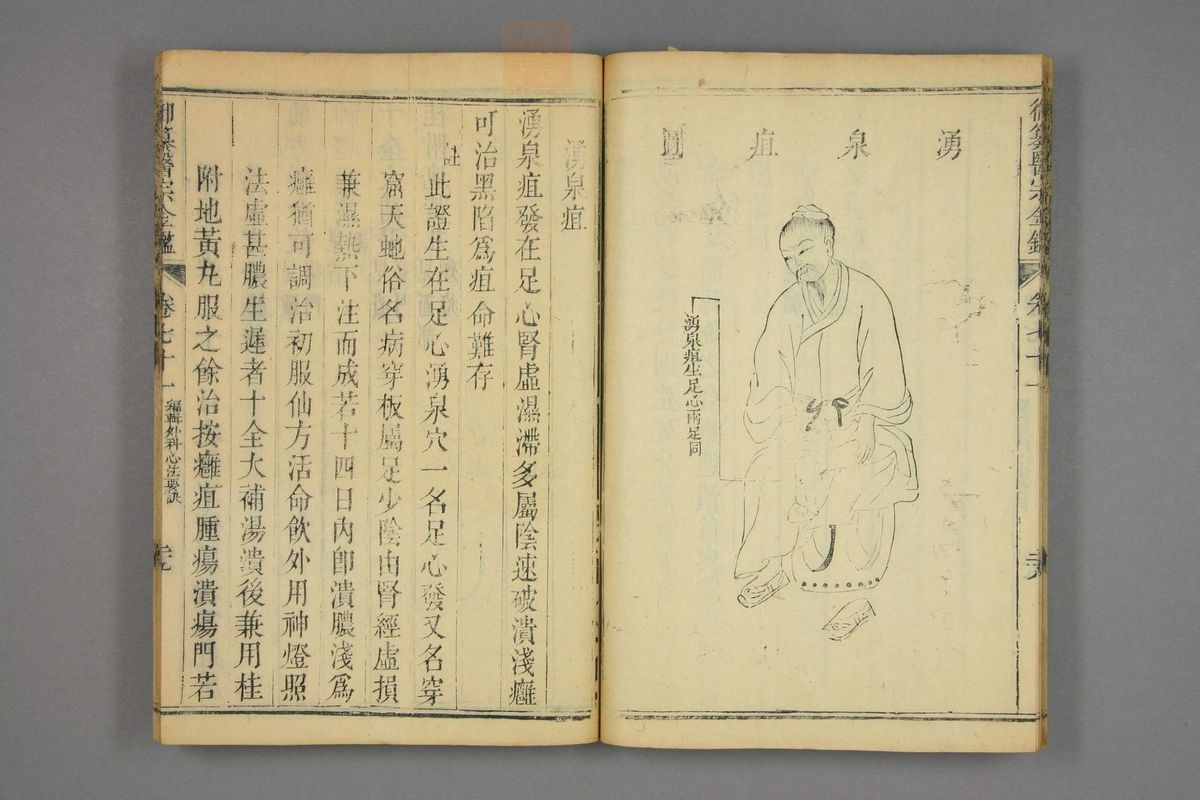 御纂醫宗金鑑
卷七十一
二十八
湧泉疽圖
湧泉疽生足心兩足同
湧泉疽
湧泉疽發在足心腎虛濕滯多屬陰速破潰淺癰
可治黑陷爲疽命難存
註此證生在足心湧泉穴一名足心發又名穿
窟天蛇俗名病穿板屬足少陰由腎經虛損
兼濕熱下注而成若十四日內卽潰膿淺爲
癰猶可調治初服仙方活命飲外用神燈照
法虛甚膿生遲者十全大補湯潰後兼用桂
附地黃丸服之餘治按癰疽腫瘍潰瘍門若
御纂醫宗金鑑
卷七十一
編輯外科心法要訣